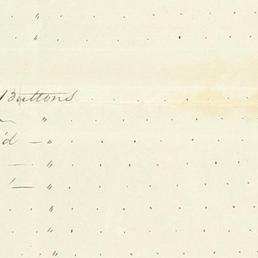 "
"
Buttons
"
'd — "
— "
— "
"
"